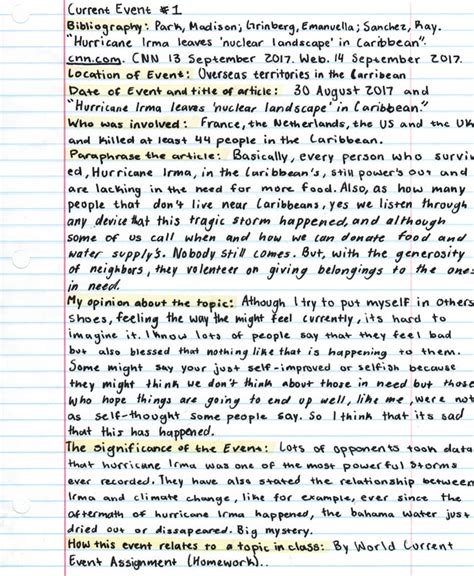 Current Event #1
Bibliography: Park, Madison; Grinberg, Emanuella; Sanchez, Ray.
"Hurricane Irma leaves 'nuclear landscape' in Caribbean".
cnn.com. CNN 13 September 2017. Web. 14 September 2017.
Location of Event: Overseas territories in the Carribean
Date of Event and title of article: 30 August 2017 and
"Hurricane Irma leaves 'nuclear landscape' in Caribbean."
Who was involved: France, the Netherlands, the US and the UK
and killed at least 44 people in the Caribbean.
Paraphrase the article: Basically, every person who surviv
ed, Hurricane Irma, in the Caribbean's, still power's out and
are lacking in the need for more food. Also, as how many
people that don't live near Caribbeans, yes we listen through
any device that this tragic storm happened, and although
some of us call when and how we can donate food and
water supply's. Nobody still comes. But, with the generosity
of neighbors, they volenteer on giving belongings to the ones
in need.
My opinion about the topic: Athough I try to put myself in others
shoes, feeling the way the might feel currently, its hard to
imagine it. I know lots of people say that they feel bad
but also blessed that nothing like that is happening to them.
Some might say your just self-improved or selfish because
they might think we don't think about those in need but those
who hope things are going to end up well, like me, were not
as self-thought some people say. So I think that its sad
that this has happened.
The significance of the Event: Lots of opponents took data
that hurricane Irma was one of the most powerful storms
ever recorded. They have also stated the relationship between
Irma and climate change, like for example, ever since the
aftermath of hurricane Irma happened, the bahama water just
dried out or dissapeared. Big mystery.
How this event relates to a topic in class: By World Current
Event Assignment (Homework)..